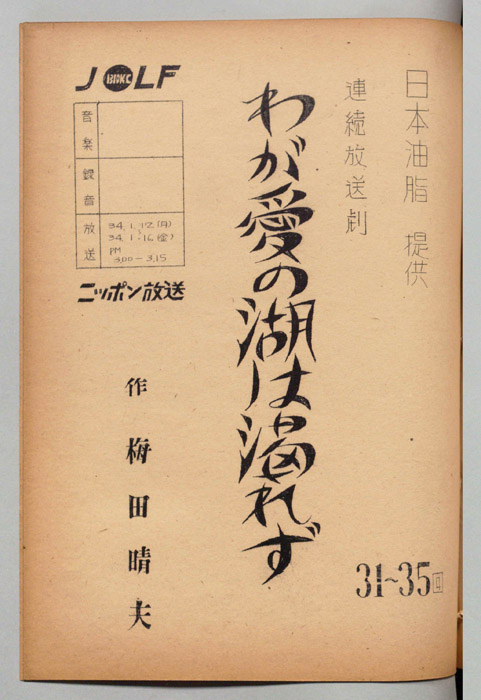 日本油脂 提供
連続放送劇
わが愛の湖は涸れず
31~35回
JOLF
音楽
録音
放送
34.1.12(月)
34.1.16(金)
PM
3.00-3.15
ニッポン放送
作 梅田晴夫